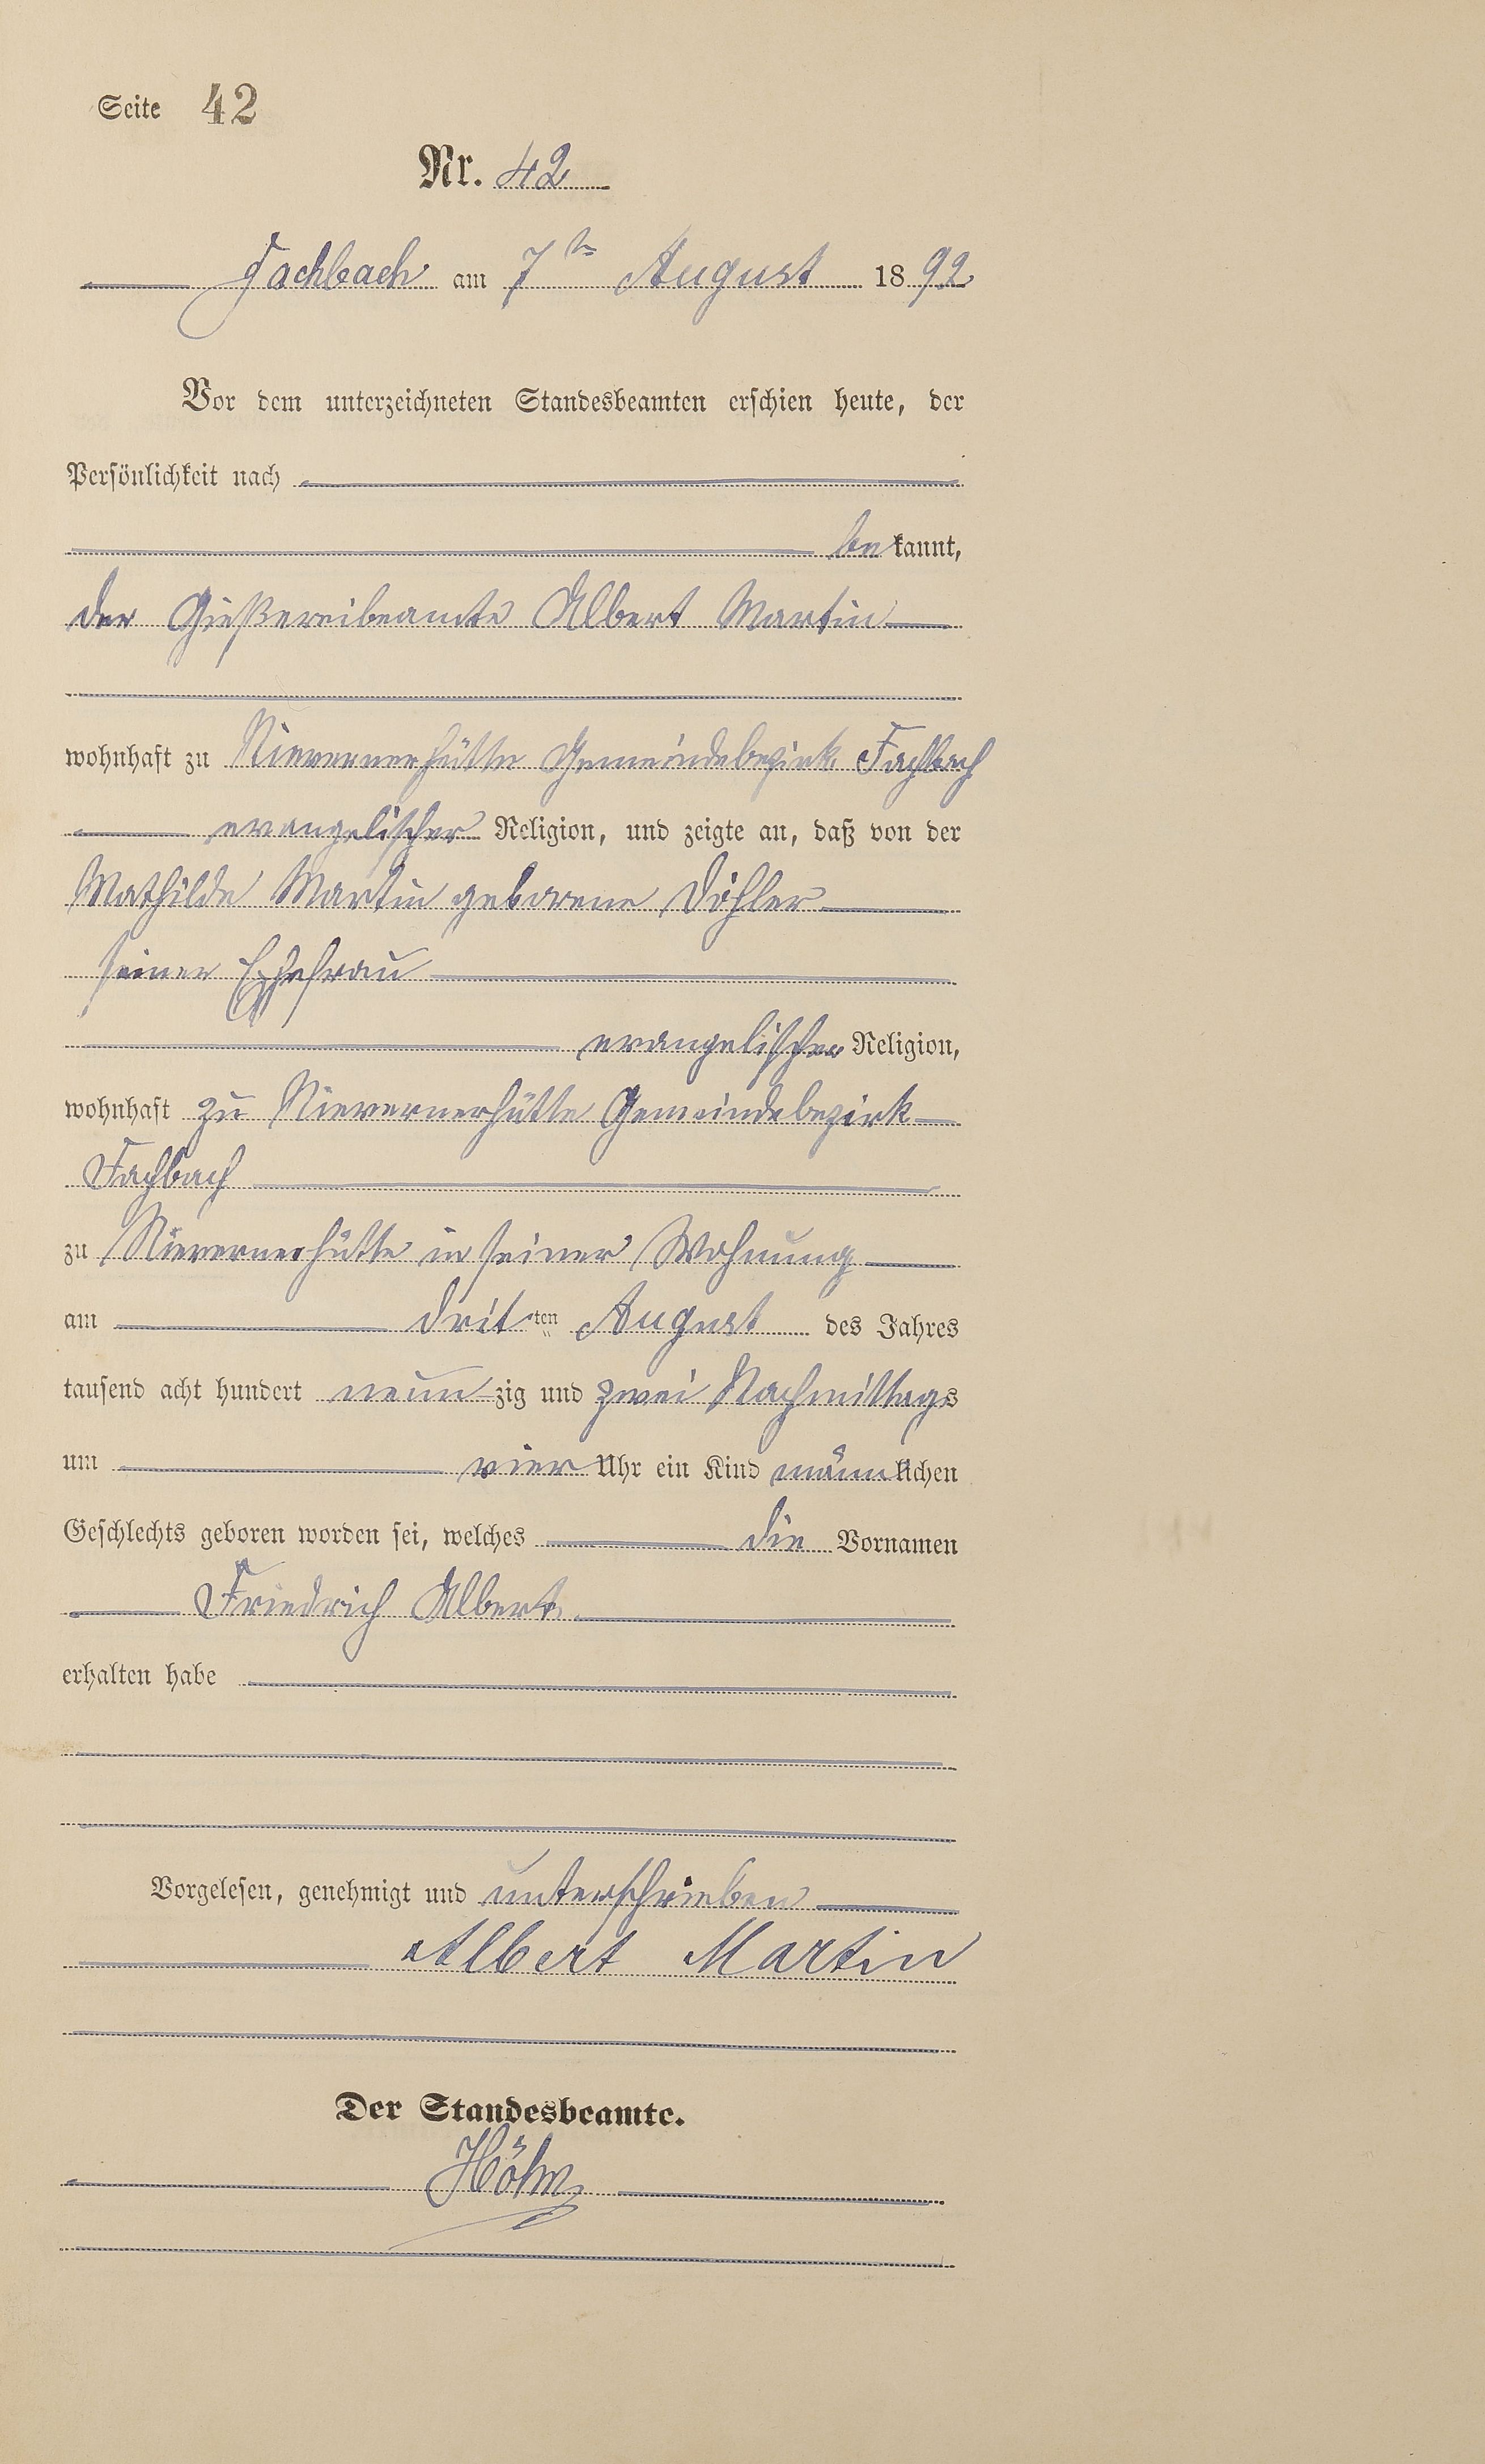 Seite 42
Nr. 42
Fachbach am 7ten August 1892
Vor dem unterzeichneten Standesbeamten erschien heute, der
Persönlichkeit nach
bekannt,
der Gießereibeamte Albert Martin
wohnhaft zu Nievernerhütte Gemeindebezirk Fachbach
evangelischer Religion, und zeigte an, daß von der
Mathilde Martin geborene Döhler
seiner Ehefrau
evangelischer Religion,
wohnhaft zu Nievernerhütte Gemeindebezirk
Fachbach
zu Nievernerhütte in seiner Wohnung
am dritten August des Jahres
tausend acht hundert neunzig und zwei Nachmittags
um vier Uhr ein Kind männlichen
Geschlechts geboren worden sei, welches die Vornamen
Friedrich Albert
erhalten habe
Vorgelesen, genehmigt und unterschrieben
Albert Martin
Der Standesbeamte.